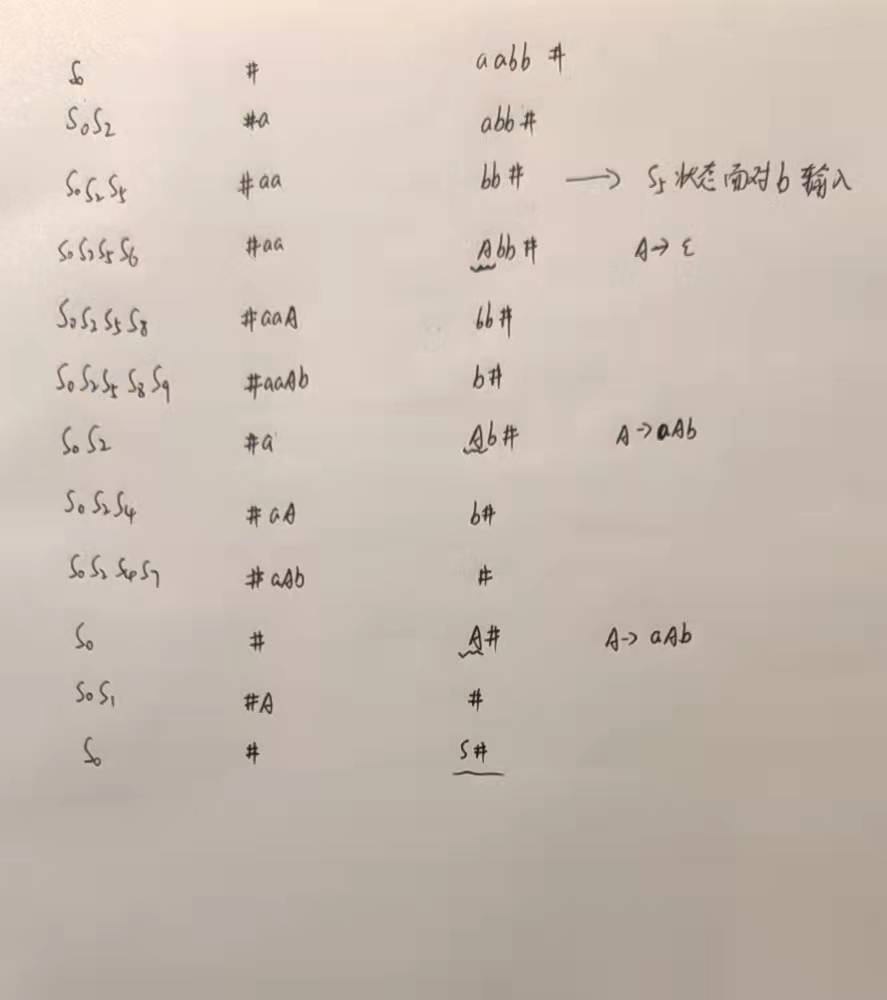 S₀ # aabb #
S₀S₂ #a abb#
S₀S₂S₅ #aa bb# → S₅状态面对b输入
S₀S₂S₅S₆ #aa Abb# A→ε
S₀S₂S₅S₈ #aaA bb#
S₀S₂S₅S₈S₉ #aaAb b#
S₀S₂ #a Ab# A→aAb
S₀S₂S₄ #aA b#
S₀S₂S₄S₇ #aAb #
S₀ # A# A→aAb
S₀S₁ #A #
S₀ # S#